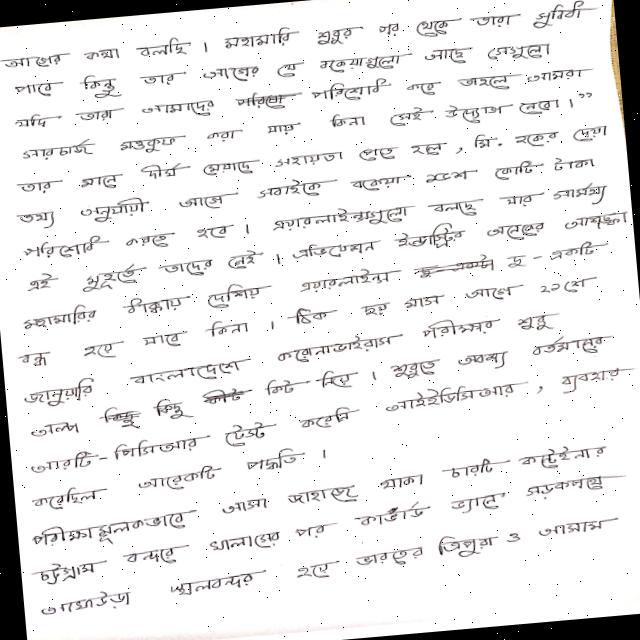 আগের কথা বলছি। মহামারি শুরুর পর থেকে তারা সুবিধা
পাবে কিন্তু তার আগের যে বকেয়াগুলো আছে সেগুলো
যদি তারা আমাদের পরিশোধ করে তাহলে আমরা
সারচার্জ মওকুফ করা যায় কিনা সেই উদ্যোগ নেবো।”
তার মানে দীর্ঘ মেয়াদে সহায়তা পেতে হলে, মি. হকের দেয়া
তথ্য অনুযায়ী আগে সবাইকে বকেয়া কোটি টাকা
পরিশোধ করতে হবে। এয়ারলাইন্সগুলো বলছে যার সামর্থ্য
এই মুহূর্তে তাদের নেই। এভিয়েশন ইন্ডাস্ট্রির অনেকের আশঙ্কা
মহামারির ধাক্কায় দেশিয় এয়ারলাইন্স দু-একটি
বন্ধ হয়ে যাবে কিনা। ঠিক ছয় মাস আগে ২১শে
জানুয়ারি বাংলাদেশে করোনাভাইরাস পরীক্ষার শুরু
অল্প কিছু কিট দিয়ে। শুরুতে অবশ্য বর্তমানের
আরটি-পিসিআর টেস্ট করেনি আইইডিসিআর, ব্যবহার
করেছিল আরেকটি পদ্ধতি।
পরীক্ষামূলকভাবে আসা জাহাজে থাকা চারটি কন্টেইনার
চট্টগ্রাম বন্দরে খালাসের পর কাভার্ড ভ্যানে সড়কপথে
আখাউড়া স্থলবন্দর হয়ে ভারতের ত্রিপুরা ও আসাম